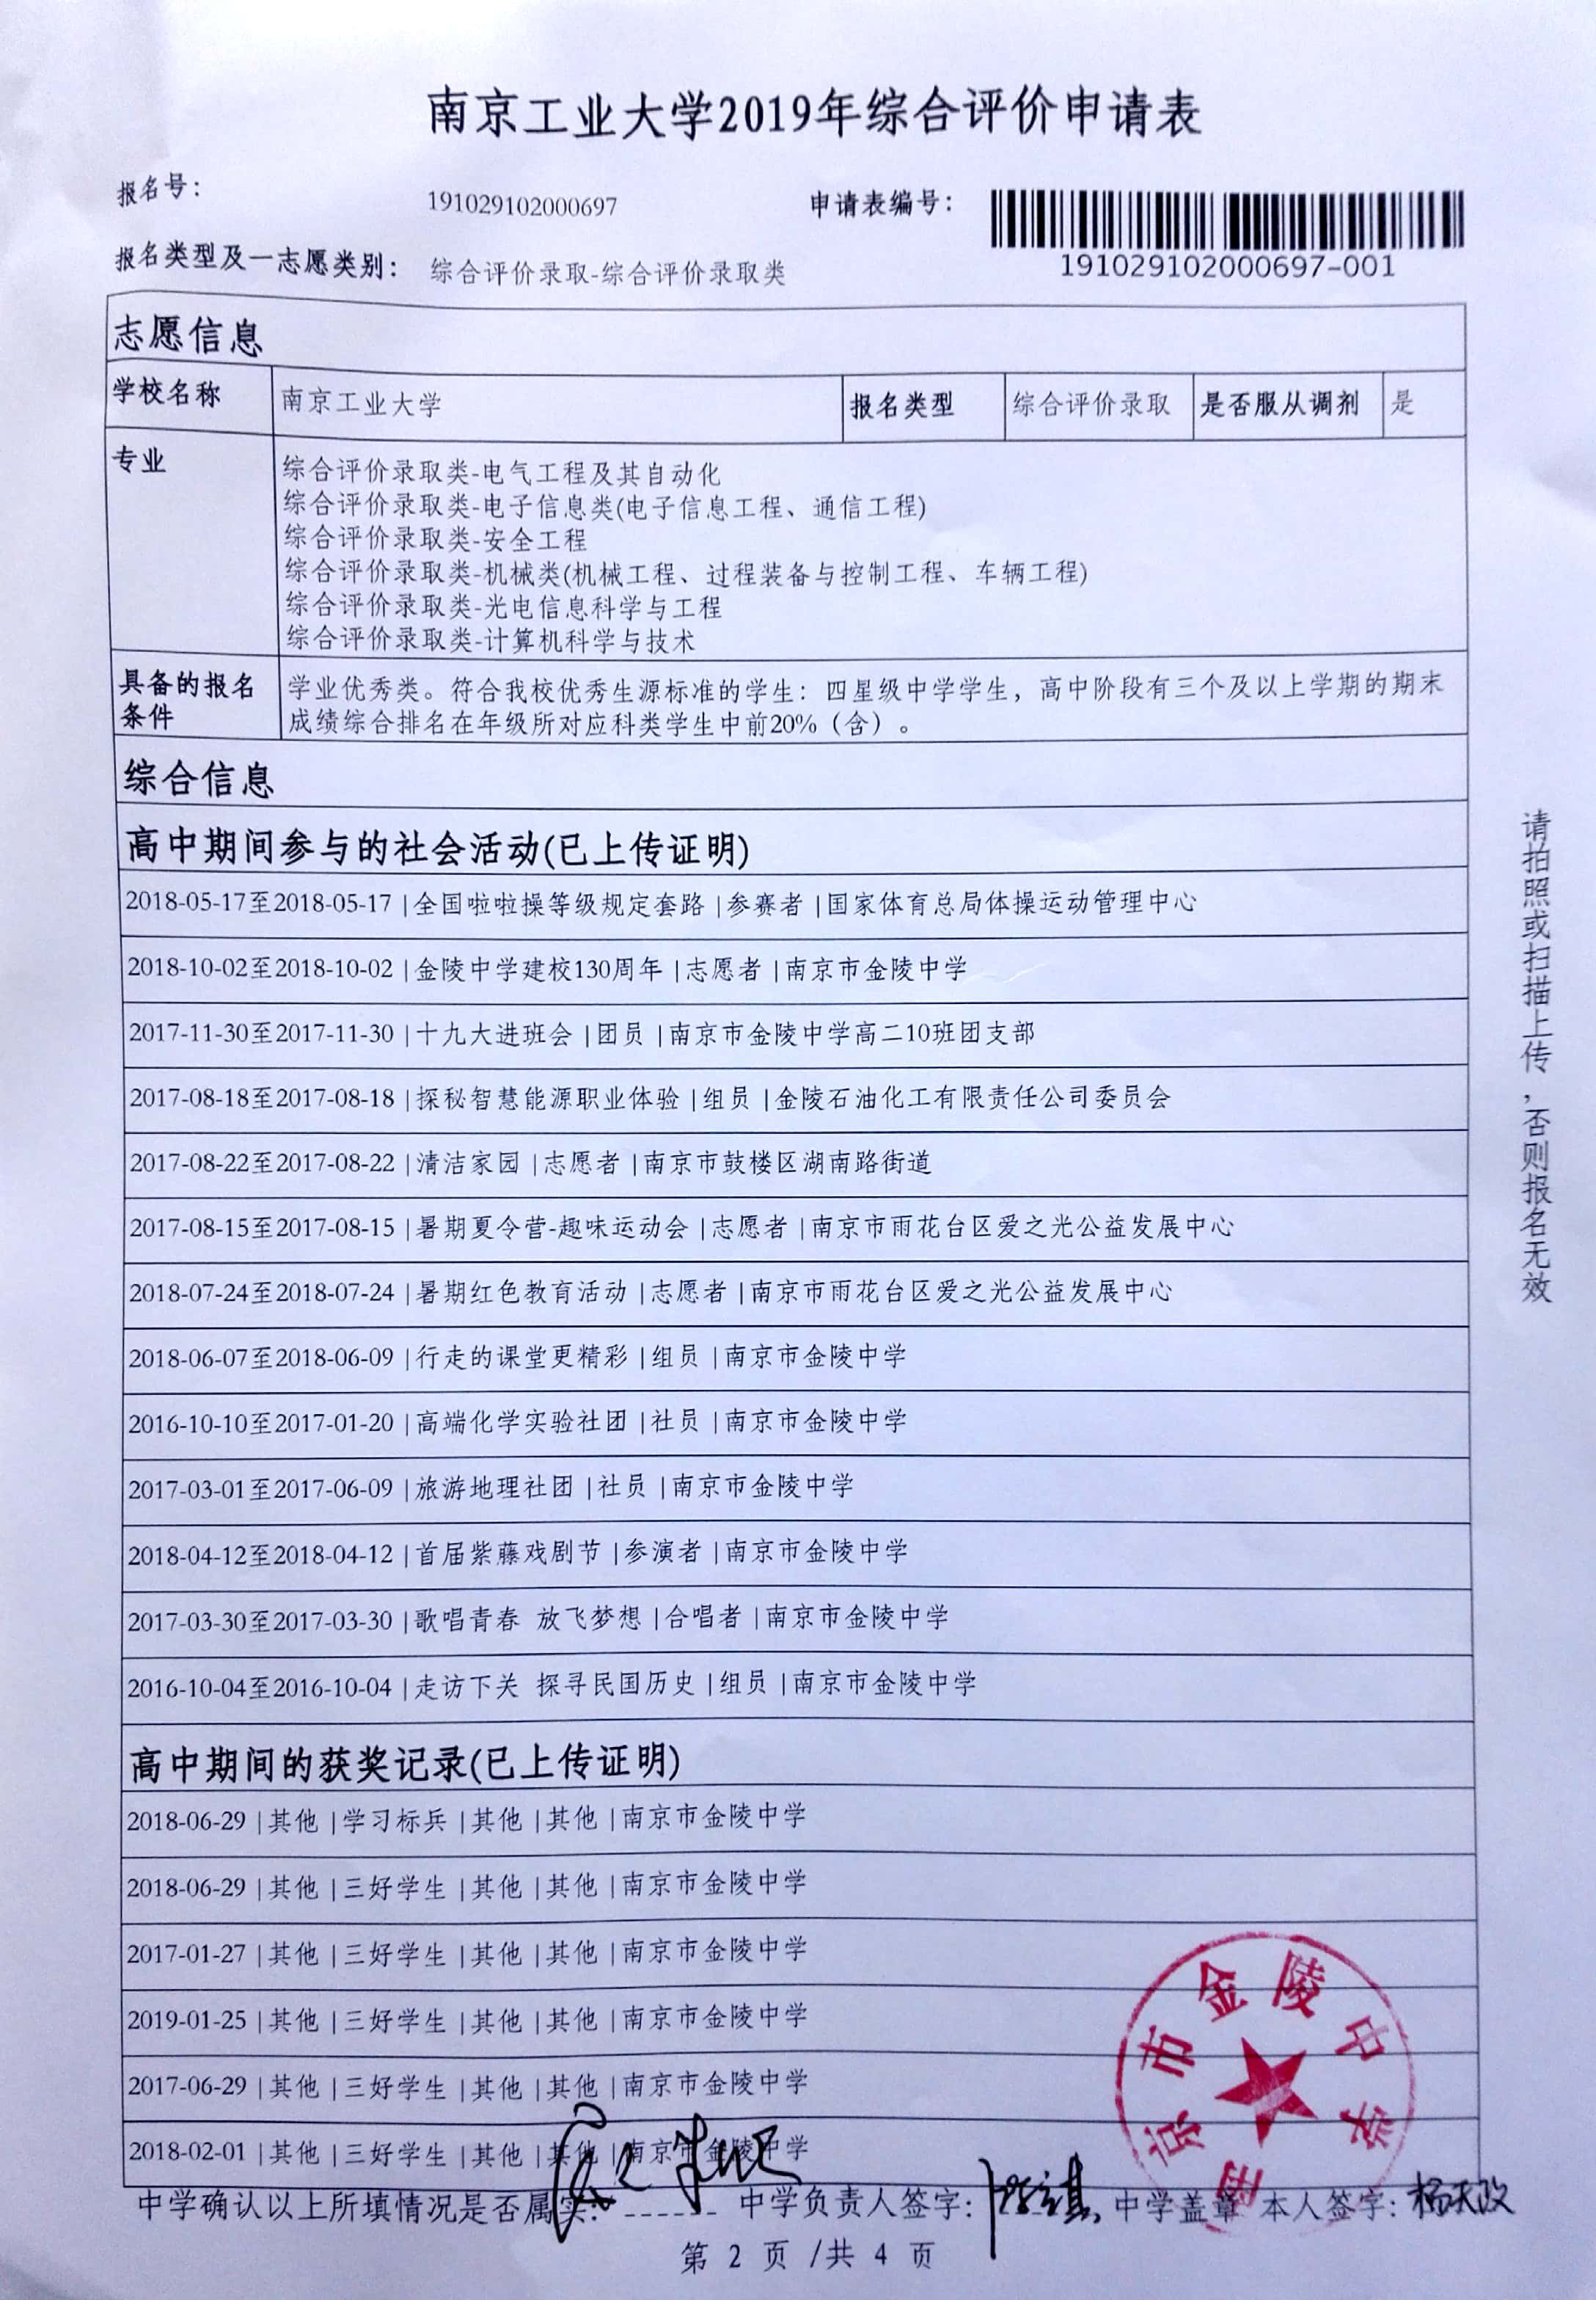 南京工业大学2019年综合评价申请表
报名号： 191029102000697 申请表编号：
191029102000697-001
报名类型及一志愿类别： 综合评价录取-综合评价录取类
志愿信息
学校名称 南京工业大学 报名类型 综合评价录取 是否服从调剂 是
专业 综合评价录取类-电气工程及其自动化
综合评价录取类-电子信息类(电子信息工程、通信工程)
综合评价录取类-安全工程
综合评价录取类-机械类(机械工程、过程装备与控制工程、车辆工程)
综合评价录取类-光电信息科学与工程
综合评价录取类-计算机科学与技术
具备的报名条件 学业优秀类。符合我校优秀生源标准的学生：四星级中学学生，高中阶段有三个及以上学期的期末
成绩综合排名在年级所对应科类学生中前20%（含）。
综合信息
高中期间参与的社会活动(已上传证明)
2018-05-17至2018-05-17 |全国啦啦操等级规定套路 |参赛者 |国家体育总局体操运动管理中心
2018-10-02至2018-10-02 |金陵中学建校130周年 |志愿者 |南京市金陵中学
2017-11-30至2017-11-30 |十九大进班会 |团员 |南京市金陵中学高二10班团支部
2017-08-18至2017-08-18 |探秘智慧能源职业体验 |组员 |金陵石油化工有限责任公司委员会
2017-08-22至2017-08-22 |清洁家园 |志愿者 |南京市鼓楼区湖南路街道
2017-08-15至2017-08-15 |暑期夏令营-趣味运动会 |志愿者 |南京市雨花台区爱之光公益发展中心
2018-07-24至2018-07-24 |暑期红色教育活动 |志愿者 |南京市雨花台区爱之光公益发展中心
2018-06-07至2018-06-09 |行走的课堂更精彩 |组员 |南京市金陵中学
2016-10-10至2017-01-20 |高端化学实验社团 |社员 |南京市金陵中学
2017-03-01至2017-06-09 |旅游地理社团 |社员 |南京市金陵中学
2018-04-12至2018-04-12 |首届紫藤戏剧节 |参演者 |南京市金陵中学
2017-03-30至2017-03-30 |歌唱青春 放飞梦想 |合唱者 |南京市金陵中学
2016-10-04至2016-10-04 |走访下关 探寻民国历史 |组员 |南京市金陵中学
高中期间的获奖记录(已上传证明)
2018-06-29 |其他 |学习标兵 |其他 |其他 |南京市金陵中学
2018-06-29 |其他 |三好学生 |其他 |其他 |南京市金陵中学
2017-01-27 |其他 |三好学生 |其他 |其他 |南京市金陵中学
2019-01-25 |其他 |三好学生 |其他 |其他 |南京市金陵中学
2017-06-29 |其他 |三好学生 |其他 |其他 |南京市金陵中学
2018-02-01 |其他 |三好学生 |其他 |其他 |南京市金陵中学
南京市金陵中学
中学确认以上所填情况是否属实：______ 中学负责人签字： 中学盖章 本人签字：
第 2 页 /共 4 页
请拍照或扫描上传，否则报名无效